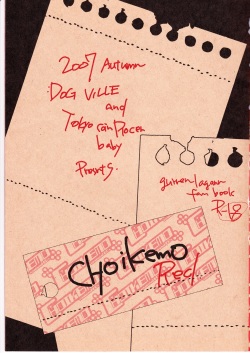 2007 Autumn
DOG VILLE
and
Tokyo can Racer
baby
Presents.
gurren lagann
fan book
R-18
Choikemo
Red